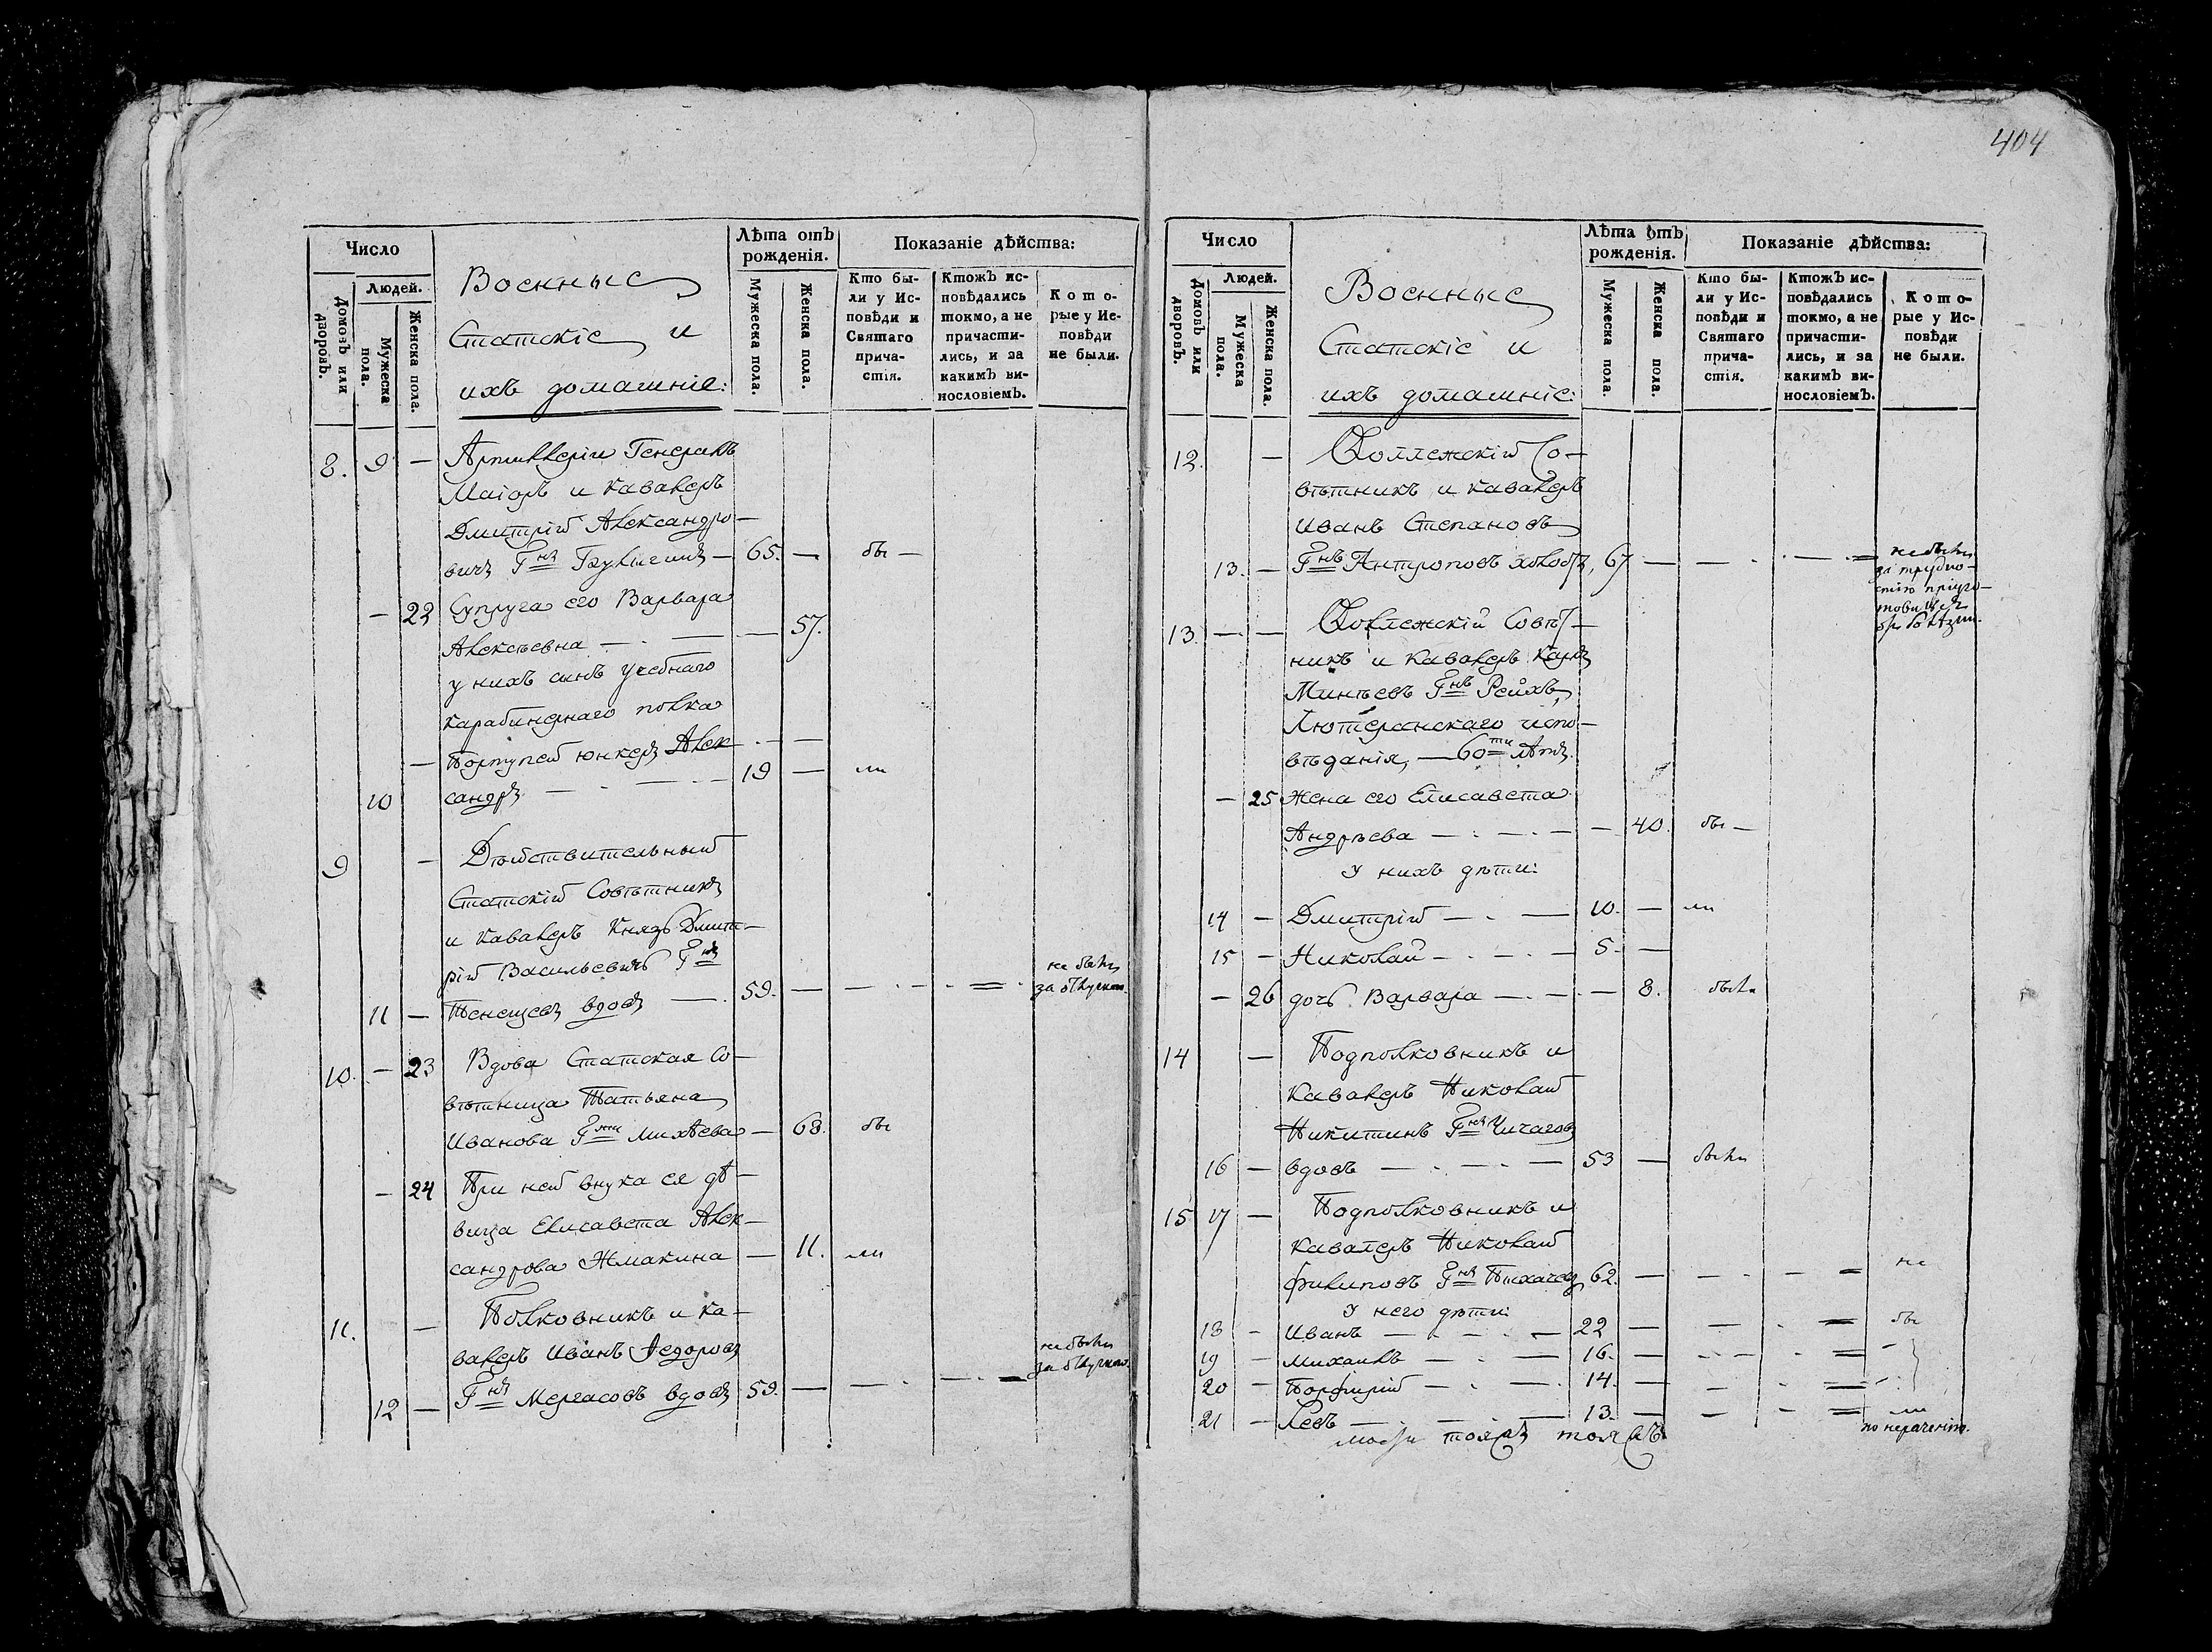 404
Число
Людей.
Домовъ или дворовъ.
Мужеска пола.
Женска пола.
Военные
Статскіе и
ихъ домашніе:
Лѣта отъ рожденія.
Мужеска пола.
Женска пола.
Показаніе дѣйства:
Кто бы-
ли у Ис-
повѣди и
Святаго
прича-
стія.
Ктожъ ис-
повѣдались
токмо, а не
причасти-
лись, и за
какимъ ви-
нословіемъ.
Кото-
рые у Ис-
повѣди
не были.
8. 9 — Артиллеріи Генералъ
Маіоръ и кавалеръ
Дмитрій Александро-
вичъ Гнъ — 65. — бы —
— 22 Супруга его Варвара
Алексѣевна — — 57.
у нихъ сынъ учебнаго
карабинернаго полка
— Портупей юнкеръ Алек-
10 сандръ — 19 — ли
9 — Дѣйствительный
Статскій Совѣтникъ
и кавалеръ Князь Дмит-
рій Васильевичъ Гнъ
11 — Тенешевъ вдовъ — 59. — не были
за отлучкою.
10. — 23 Вдова Статская Со-
вѣтница Татьяна
Иванова Гжа Михѣева — 68. бы
— 24 При ней внука ея дѣ-
вица Елисавета Алек-
сандрова Жмакина — 11. ли
11. — Полковникъ и ка-
валеръ Иванъ Ѳедоровъ
12 — Гнъ Мергасовъ вдовъ 59. — не были
за отлучкою.
Число
Людей.
Домовъ или дворовъ.
Мужеска пола.
Женска пола.
Военные
Статскіе и
ихъ домашніе:
Лѣта отъ рожденія.
Мужеска пола.
Женска пола.
Показаніе дѣйства:
Кто бы-
ли у Ис-
повѣди и
Святаго
прича-
стія.
Ктожъ ис-
повѣдались
токмо, а не
причасти-
лись, и за
какимъ ви-
нословіемъ.
Кото-
рые у Ис-
повѣди
не были.
12. — Коллежскій Со-
вѣтникъ и кавалеръ
Иванъ Степановъ
13. — Гнъ Антроповъ 67 — не были
за трудно-
стію
13. — — Коллежскій Совѣт-
никъ и Кавалеръ Карлъ
Гнъ Рейхъ,
Лютеранскаго испо-
вѣданія, — 60ти лѣтъ.
— 25 Жена его Елисавета
Андрѣева — — 40. бы —
У нихъ дѣти:
14 — Дмитрій — 10. — ли
15 — Николай — 5. —
— 26 дочь Варвара — — 8. была
14 — Подполковникъ и
Кавалеръ Николай
Никитинъ Гнъ Чичаговъ
16 — вдовъ — 53 — былъ
15 17 — Подполковникъ и
кавалеръ Николай
Филиповъ Гнъ 62. — не
У него дѣти:
18 — Иванъ — 22 — бы
19 — Михаилъ — 16. —
20 — Порфирій — 14. —
21 — Левъ — 13. — ли
по нераченію.